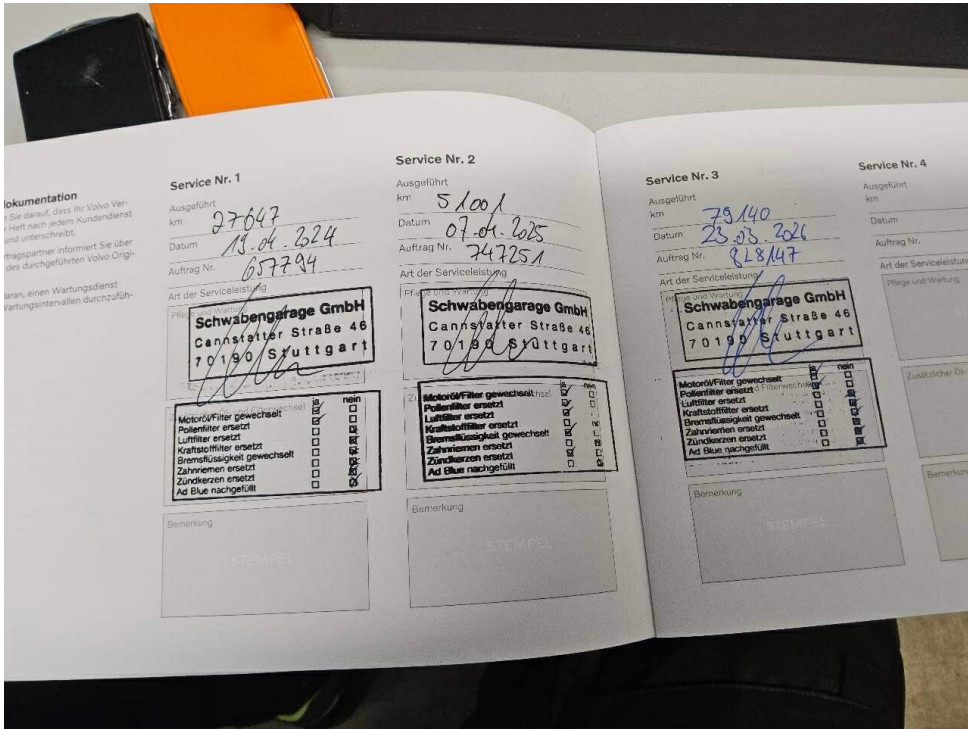 dokumentation
Sie darauf, dass Ihr Volvo Ver-
Heft nach jedem Kundendienst
und unterschreibt.
rtragspartner informiert Sie über
des durchgeführten Volvo Origi-
daran, einen Wartungsdienst
Wartungsintervallen durchzufüh-
Service Nr. 1
Ausgeführt
km 27647
Datum 19.04.2024
Auftrag Nr. 657794
Art der Serviceleistung
Pflege und Wartung
Schwabengarage GmbH
Cannstatter Straße 46
70190 Stuttgart
ja nein
Motoröl/Filter gewechselt
Pollenfilter ersetzt
Luftfilter ersetzt
Kraftstofffilter ersetzt
Bremsflüssigkeit gewechselt
Zahnriemen ersetzt
Zündkerzen ersetzt
Ad Blue nachgefüllt
Bemerkung
STEMPEL
Service Nr. 2
Ausgeführt
km 51001
Datum 07.04.2025
Auftrag Nr. 747251
Art der Serviceleistung
Pflege und Wartung
Schwabengarage GmbH
Cannstatter Straße 46
70190 Stuttgart
ja nein
Motoröl/Filter gewechselt
Pollenfilter ersetzt
Luftfilter ersetzt
Kraftstofffilter ersetzt
Bremsflüssigkeit gewechselt
Zahnriemen ersetzt
Zündkerzen ersetzt
Ad Blue nachgefüllt
Bemerkung
STEMPEL
Service Nr. 3
Ausgeführt
km 79140
Datum 23.03.2026
Auftrag Nr. 828147
Art der Serviceleistung
Pflege und Wartung
Schwabengarage GmbH
Cannstatter Straße 46
70190 Stuttgart
ja nein
Motoröl/Filter gewechselt
Pollenfilter ersetzt
Luftfilter ersetzt
Kraftstofffilter ersetzt
Bremsflüssigkeit gewechselt
Zahnriemen ersetzt
Zündkerzen ersetzt
Ad Blue nachgefüllt
Bemerkung
STEMPEL
Service Nr. 4
Ausgeführt
km
Datum
Auftrag Nr.
Art der Serviceleistun
Pflege und Wartung
Zusätzlicher Öl-
Bemerkun